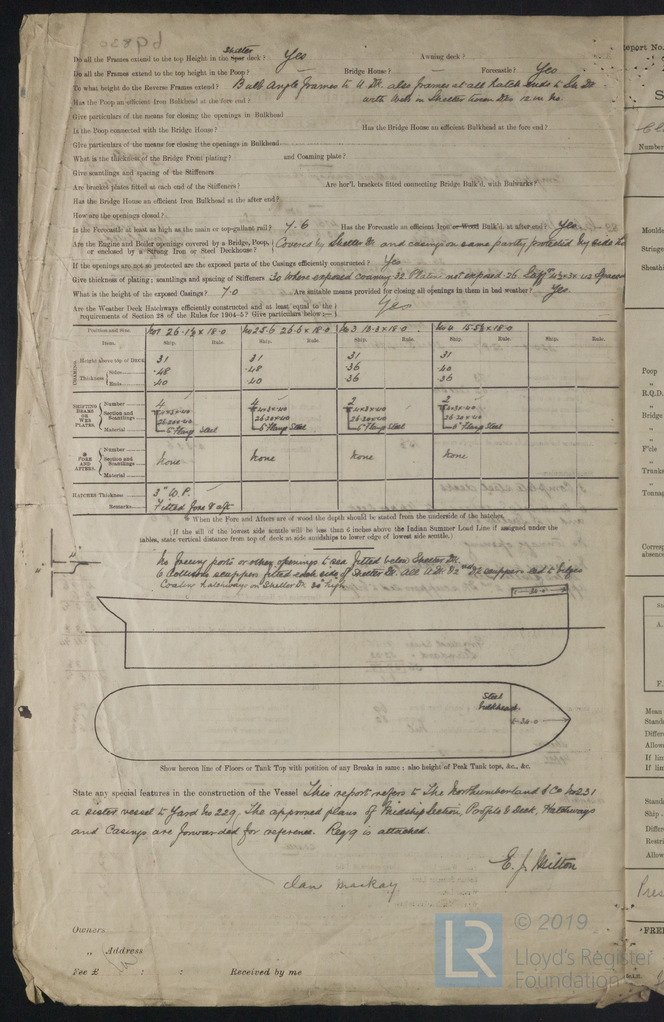 Do all the Frames extend to the top Height in the Spar Shelter deck? Yes Awning deck?
Do all the Frames extend to the top height in the Poop? Bridge House? Forecastle? Yes
To what height do the Reverse Frames extend? Bulb Angle frames to U. Dk. also frames at all hatch ends to Sh. Dk
Has the Poop an efficient Iron Bulkhead at the fore end? with Web in Shelter tween Dks
Give particulars of the means for closing the openings in Bulkhead
Is the Poop connected with the Bridge House? Has the Bridge House an efficient Bulkhead at the fore end?
Give particulars of the means for closing the openings in Bulkhead
What is the thickness of the Bridge Front plating? and Coaming plate?
Give scantlings and spacing of the Stiffeners
Are bracket plates fitted at each end of the Stiffeners? Are hor'l. brackets fitted connecting Bridge Bulk'd. with Bulwarks?
Has the Bridge House an efficient Iron Bulkhead at the after end?
How are the openings closed?
Is the Forecastle at least as high as the main or top-gallant rail? 7.6 Has the Forecastle an efficient Iron or Wood Bulk'd. at after end? Yes
Are the Engine and Boiler openings covered by a Bridge, Poop, Covered by Shelter Dk and casing on same partly protected by side
or enclosed by a Strong Iron or Steel Deckhouse?
If the openings are not so protected are the exposed parts of the Casings efficiently constructed? Yes
Give thickness of plating; scantlings and spacing of Stiffeners .30 where exposed coaming .32 Plating not exposed .26 Spaced
What is the height of the exposed Casings? 7.0 Are suitable means provided for closing all openings in them in bad weather? Yes
Are the Weather Deck Hatchways efficiently constructed and at least equal to the
requirements of Section 28 of the Rules for 1904-5? Give particulars below:— Yes
Position and Size. No 1 26-1½ x 18.0 No 2 25.6 26.6 x 18.0 No 3 12-3 x 18.0 No 4 15-5½ x 18.0
Item. Ship. Rule. Ship. Rule. Ship. Rule. Ship. Rule. Ship. Rule.
COAMING Height above top of DECK 31 31 31 31
Thickness Sides .48 .48 .36 .40
Ends .40 .40 .36 .36
SHIFTING BEAMS OR WEB PLATES. Number 4 4 2 2
Section and Scantlings 4x3x.40 4x3x.40 4x3x.40 4x3x.40
26.20x.40 26.20x.40 26.20x.40 26.20x.40
Material 5" Flang Steel 5" Flang Steel 5" Flang Steel 5" Flang Steel
* FORE AND AFTERS. Number
Section and Scantlings None None None None
Material
HATCHES Thickness 3" W.P.
Remarks Fitted fore & aft
* When the Fore and Afters are of wood the depth should be stated from the underside of the hatches.
(If the sill of the lowest side scuttle will be less than 6 inches above the Indian Summer Load Line if assigned under the
tables, state vertical distance from top of deck at side amidships to lower edge of lowest side scuttle.)
No freeing ports or other openings to sea fitted below Shelter Dk.
6 Collision scuppers fitted each side of Shelter Dk. All U. Dk & 2nd Dk scuppers led to bilges
Coaling hatchways on Shelter Dk 30" high
34.0
Steel bulkhead.
34.0
Show hereon line of Floors or Tank Top with position of any Breaks in same; also height of Peak Tank tops, &c., &c.
State any special features in the construction of the Vessel This report refers to The Northumberland S Co No 231
a sister vessel to Yard No 229. The approved plans of Midship Section, Profile & Deck, Hatchways
and Casings are forwarded for reference. Rep. 9 is attached.
E. J. Milton
Clan Mackay
Owners
„ Address
Fee £ : : Received by me
© 2019
LR
Lloyd's Register
Foundation
Report No.
Number
Moulded
Stringer
Sheathi
Poop
R.Q.D.
Bridge
F'cle
Trunks
Tonnag
Corresp
absence
A.
F.
Mean
Stand
Differe
Allow
If lim
If lin
Stand
Ship
Differe
Restri
Allow
FREE